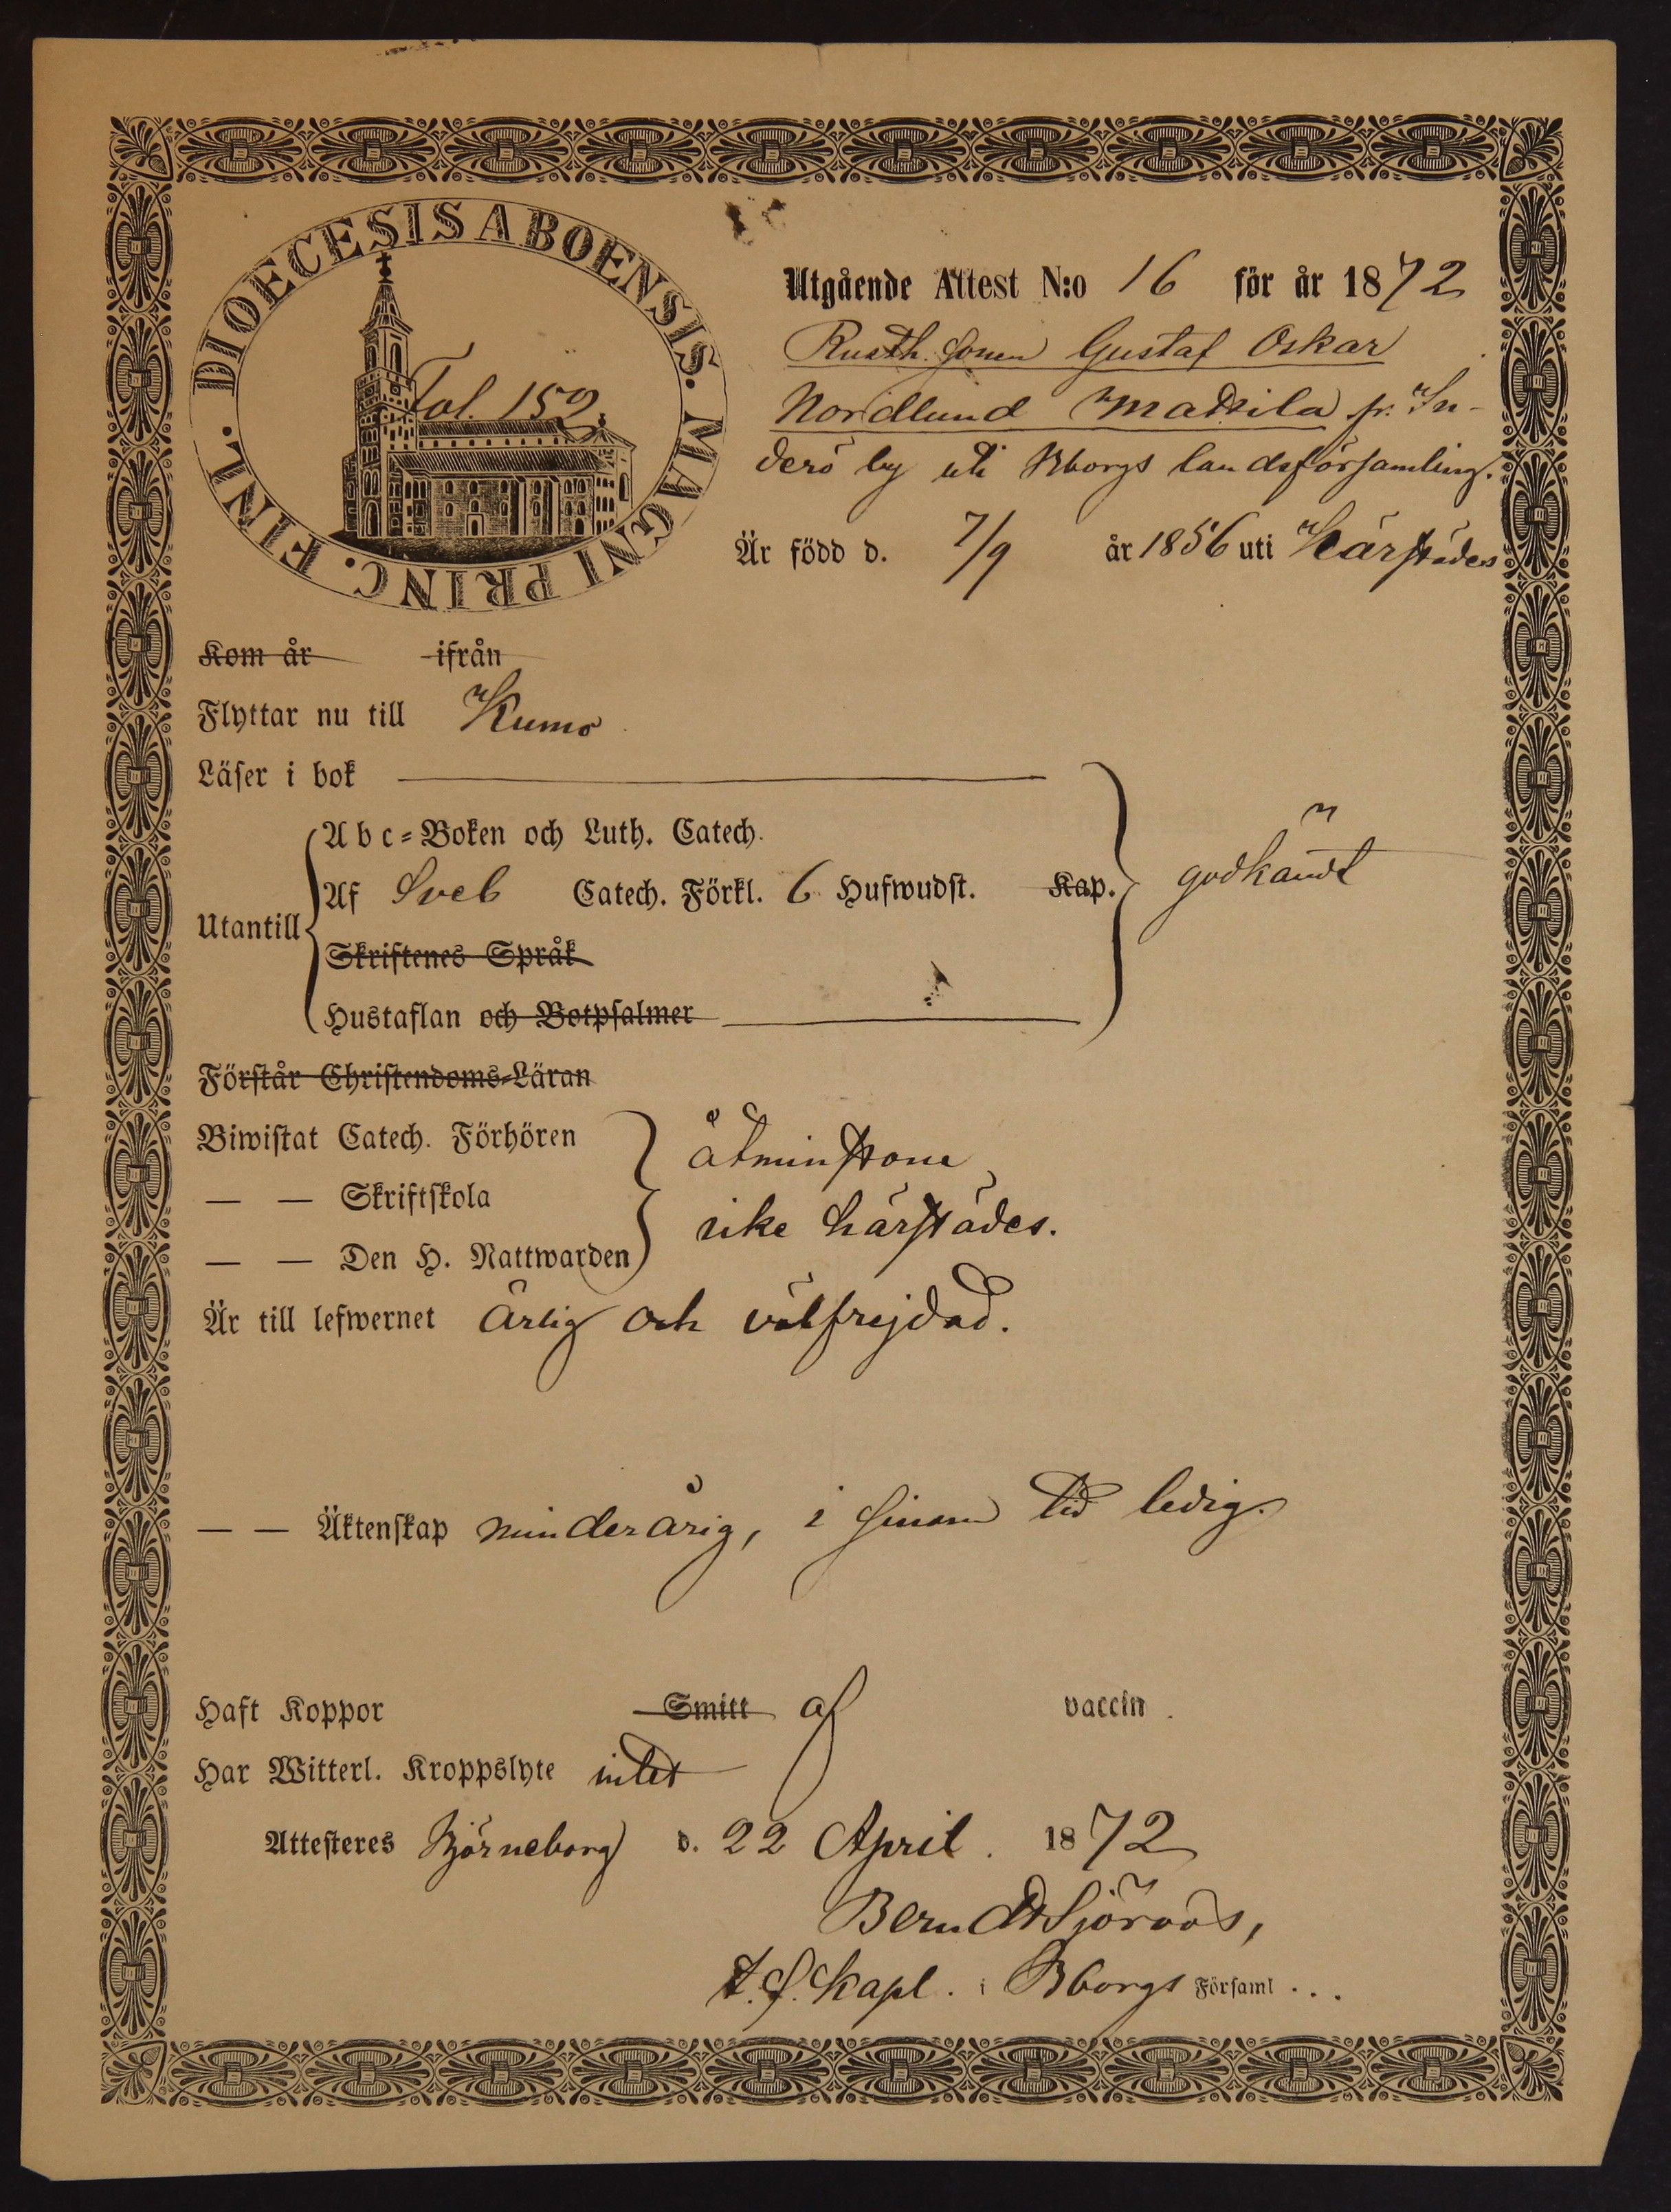 DIOECESIS ABOENSIS. MAGNI PRINC. FINL.
Fol. 159.
Utgående Attest N:o 16 för år 1872
Rusth. sonen Gustaf Oskar
Nordlund Mattila fr. In-
derö by uti Bborgs landsförsamling.
Är född d. 7/9 år 1856 uti härstädes
Kom år ifrån
Flyttar nu till Kumo
Läser i bok
Utantill
Abc=Boken och Luth. Catech.
Af Sveb Catech. Förkl. 6 Hufwudst. Kap.
godkändt
Skriftenes Språk
Hustaflan och Botpsalmer
Förstår Christendoms=Läran
Biwistat Catech. Förhören
— — Skriftskola
— — Den H. Nattwarden
åtminstone
icke härstädes.
Är till lefwernet ärlig och välfrejdad.
— — Äktenskap minderårig, i sinom tid ledig.
Haft Koppor Smitt af vaccin.
Har Witterl. Kroppslyte intet
Attesteres Björneborg d. 22 April. 1872
Berndt Sjöroos,
t.f. Kapl. i Bborgs Församl...